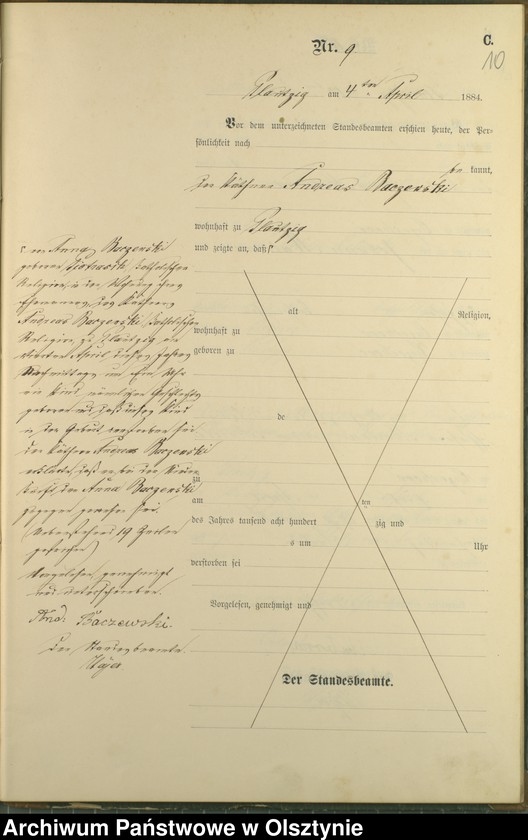 C.
10
Nr. 9
Plautzig am 4ten April 1884.
Vor dem unterzeichneten Standesbeamten erschien heute, der Per-
sönlichkeit nach
be kannt,
der Käthner Andreas Baczewski
wohnhaft zu Plautzig
und zeigte an, daß
alt Religion,
wohnhaft zu
geboren zu
de
zu
am ten
des Jahres tausend acht hundert zig und
s um Uhr
verstorben sei
Vorgelesen, genehmigt und
Der Standesbeamte.
Anna Baczewski
geborene katholischer
Religion, in der Wohnung ihres
Ehemannes, des Käthners
Andreas Baczewski, katholischer
Religion, zu Plautzig am
vierten April dieses Jahres
Nachmittags um ein Uhr
ein Kind männlichen Geschlechts
geboren und daß dieses Kind
in der Geburt verstorben sei
der Käthner Andreas Baczewski
erklärte, daß er bei der Nieder-
kunft der Anna Baczewski
zugegen gewesen sei.
19 Zeilen
gestrichen)
Vorgelesen, genehmigt
und unterschrieben.
And. Baczewski.
Der Standesbeamte.
Archiwum Państwowe w Olsztynie